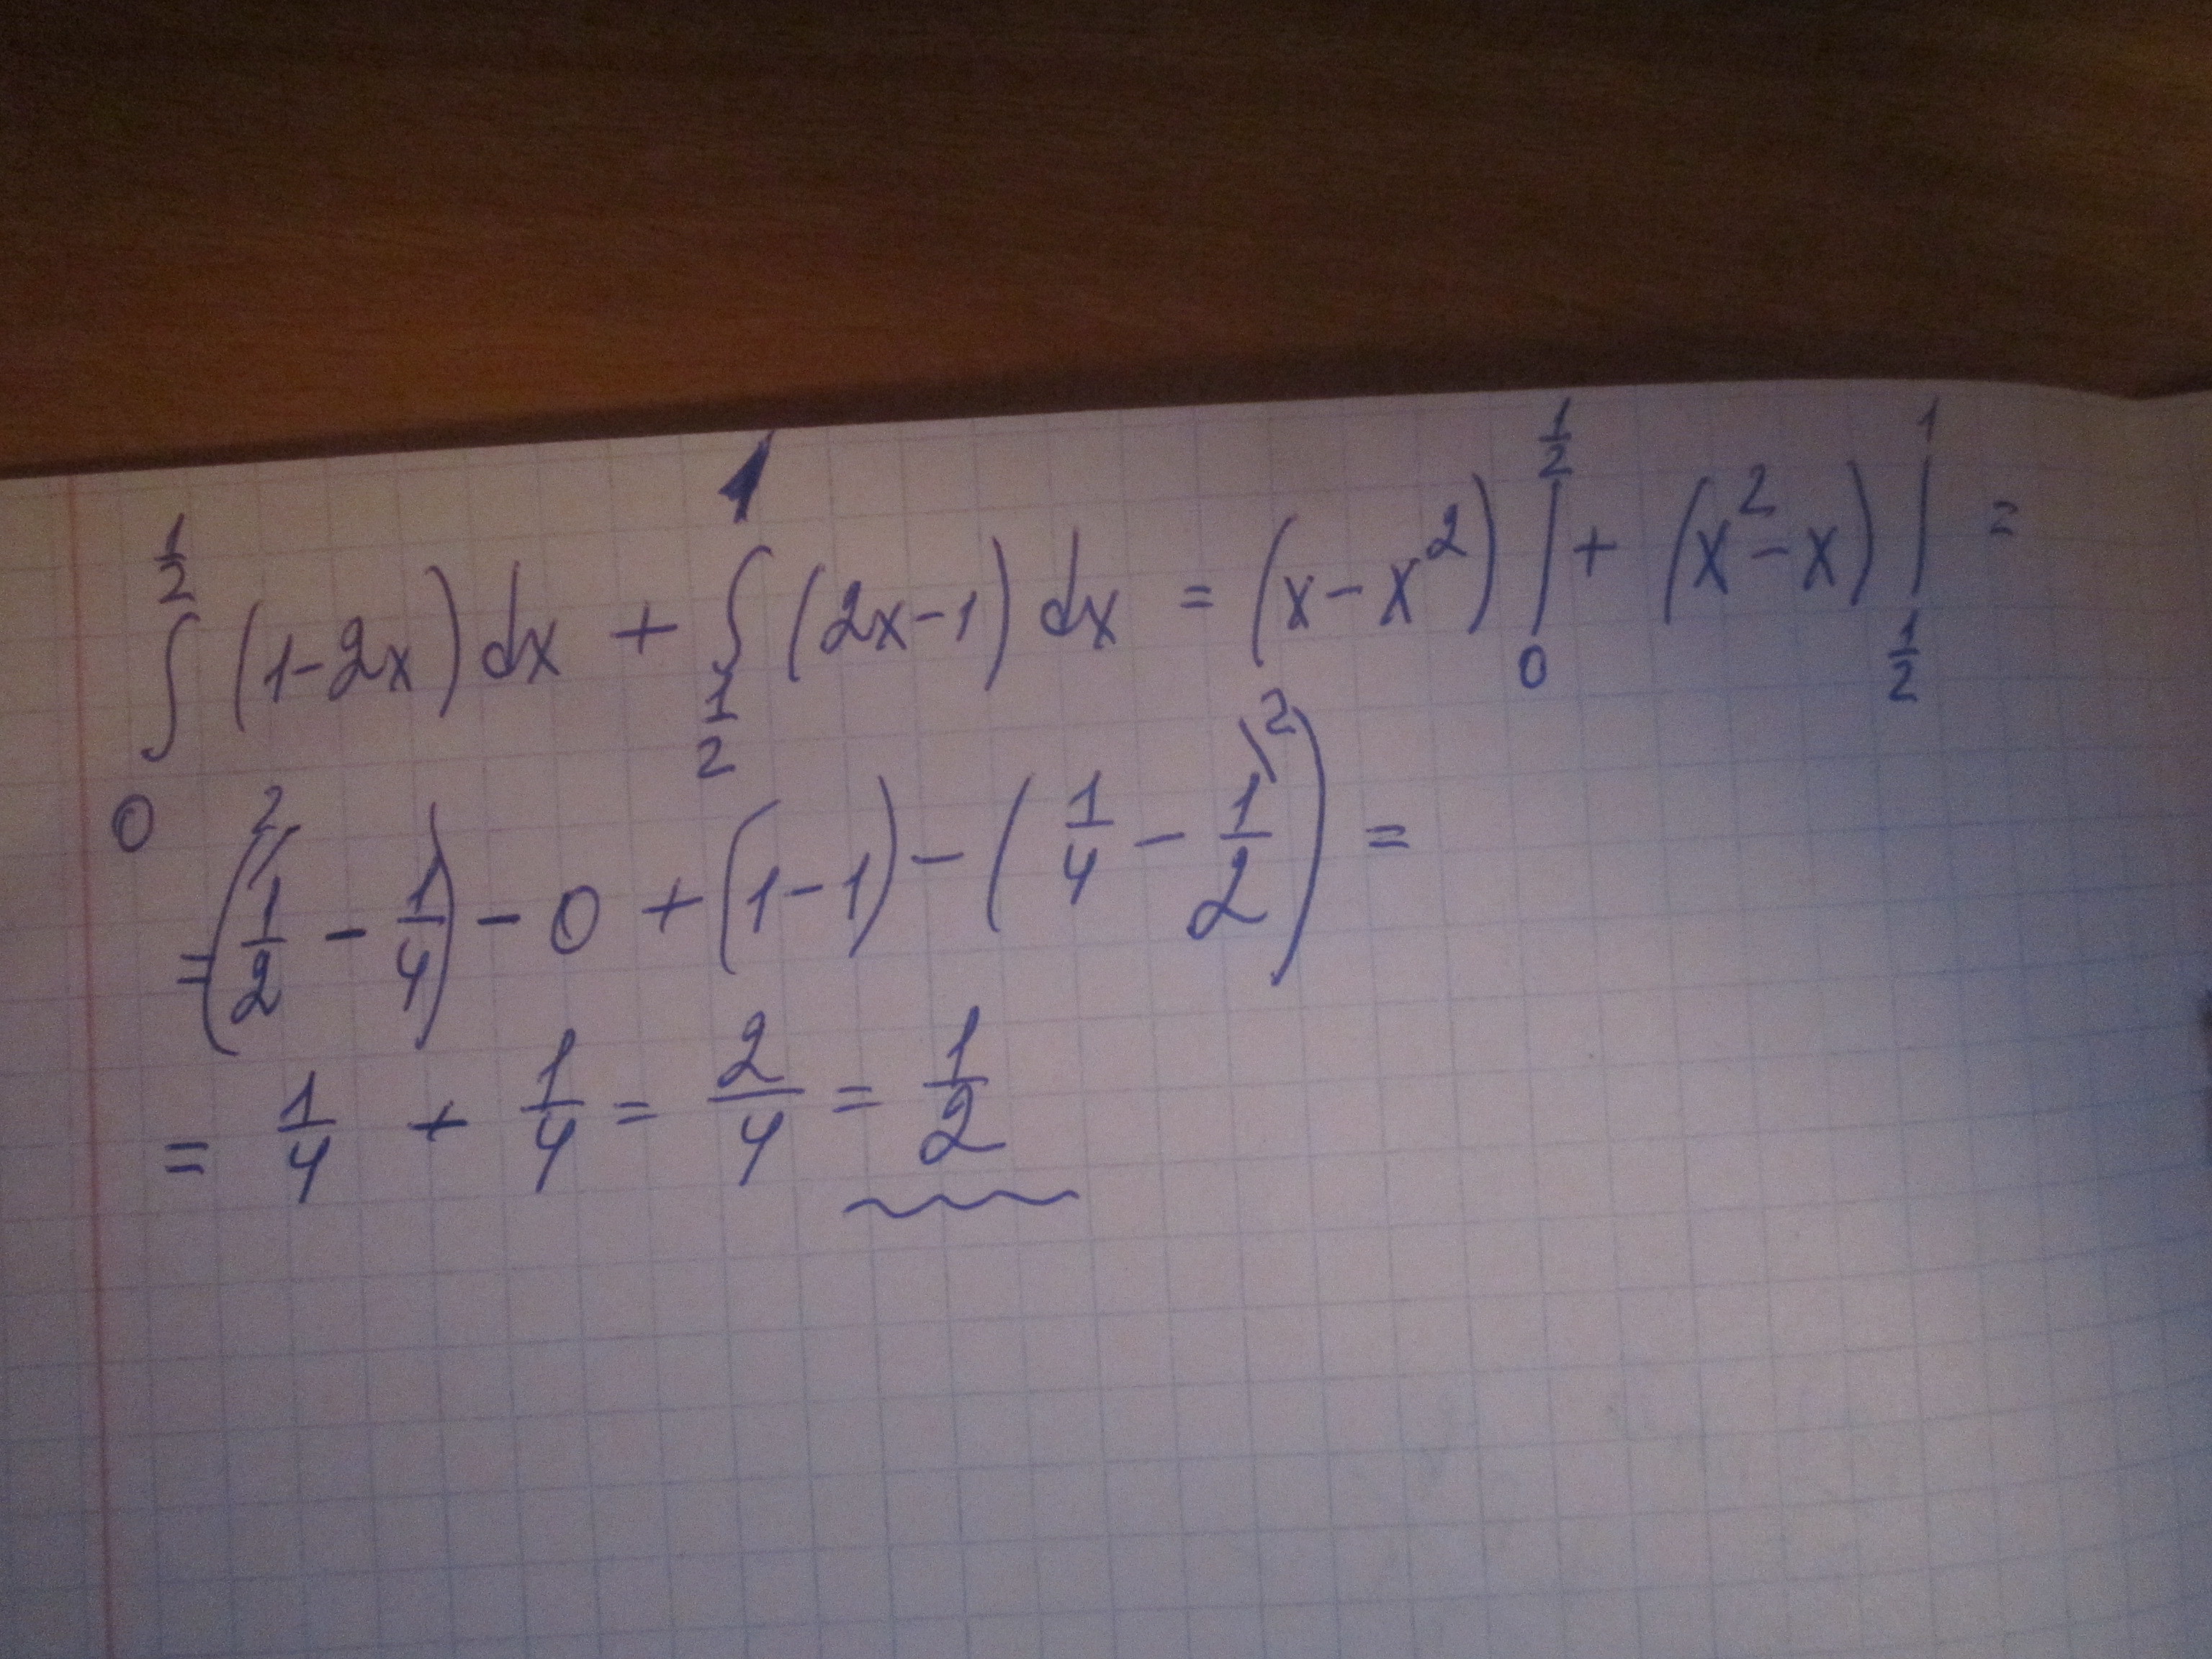 ∫_0^{1/2} (1-2x) dx + ∫_{1/2}^1 (2x-1) dx = (x-x²)|_0^{1/2} + (x²-x)|_{1/2}^1 =
= (1/2^{/2} - 1/4) - 0 + (1-1) - (1/4 - 1/2^{\2}) =
= 1/4 + 1/4 = 2/4 = 1/2